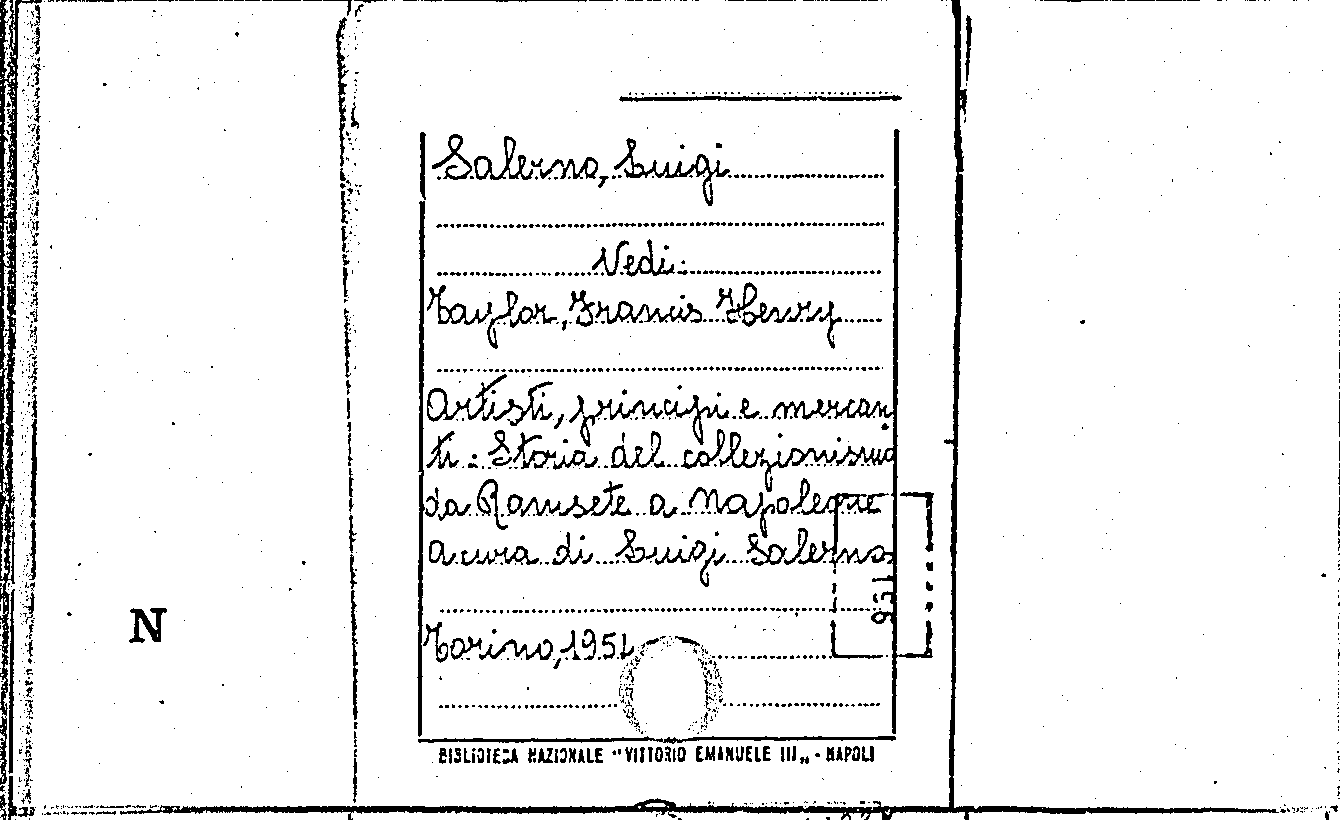 Salerno, Luigi
Vedi:
Taylor, Francis Henry
Artisti, principi e mercan
ti. Storia del collezionismo
da Ramsete a Napoleone
a cura di Luigi Salerno.
951
N
Torino, 1951
BIBLIOTECA NAZIONALE "VITTORIO EMANUELE III„ - NAPOLI